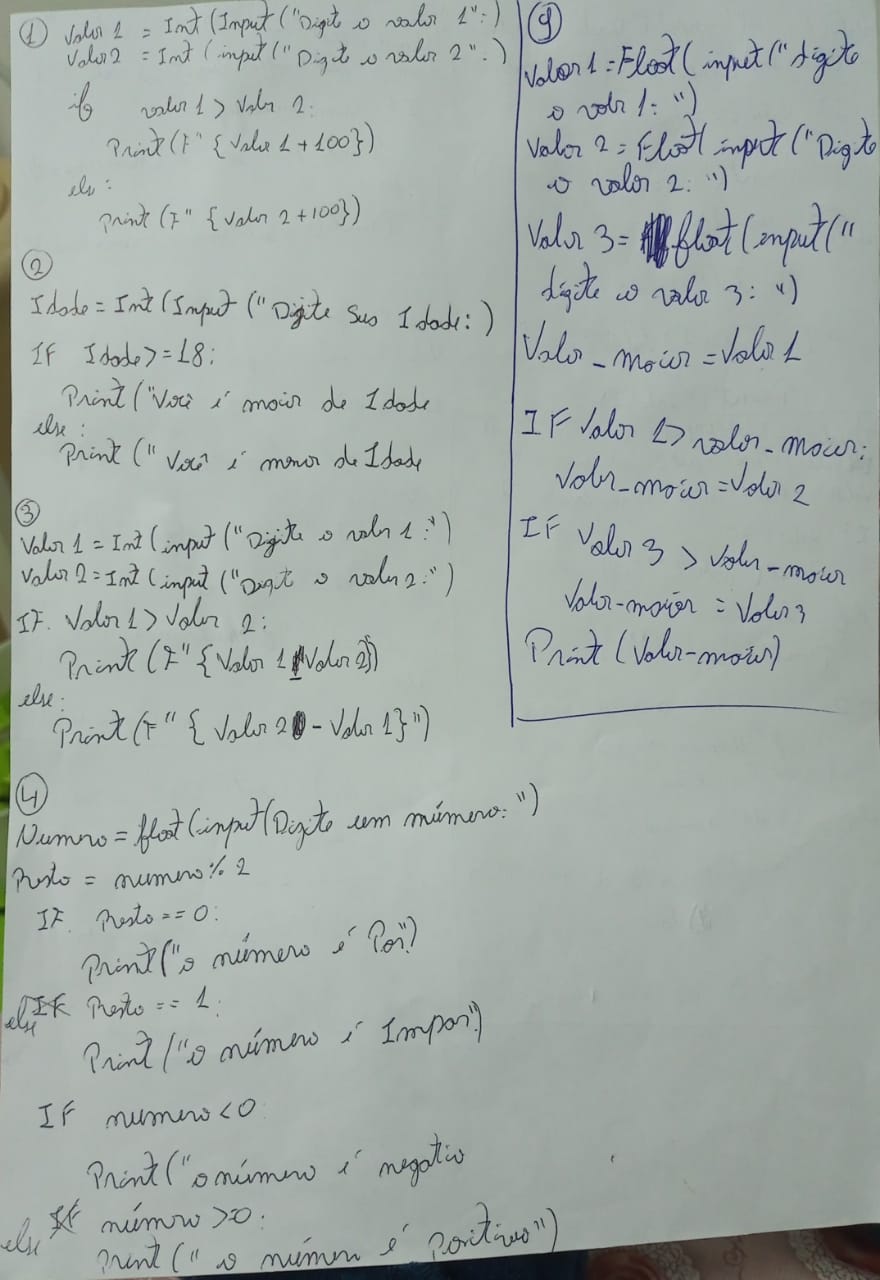 ①
Valor 1 = Int (Input ("Digite o valor 1":)
Valor2 = Int (input ("Digite o valor 2":)
if valor 1 > Valor 2:
Print (F" {Valor 1+100})
els:
Print (F" {Valor 2+100})
②
Idade = Int (Input ("Digite Sua Idade:)
IF Idade >= 18:
Print ("Você é maior de Idade
else:
Print (" Você é menor de Idade
③
Valor 1 = Int (input ("Digite o valor 1:")
Valor 2 = Int (input ("Digite o valor 2:")
IF. Valor 1 > Valor 2:
Print (F" {Valor 1 - Valor 2})
else:
Print (F" { Valor 2 - Valor 1}")
④
Numero = float (input (Digite um número: ")
Resto = numero % 2
IF Resto == 0:
Print ("o número é Par")
else Resto == 1:
Print ("o número é Impar")
IF numero < 0
Print ("o número é negativo
else número > 0:
Print (" o número é Positivo")
⑨
Valor 1 = Float (input (" digite
o valor 1: ")
Valor 2 = Float (input ("Digite
o valor 2: ")
Valor 3 = float (input ("
digite o valor 3: ")
Valor _ maior = Valor 1
IF Valor 1 > valor _ maior:
Valor _ maior = Valor 2
IF Valor 3 > valor _ maior
Valor-maior = Valor 3
Print (Valor-maior)